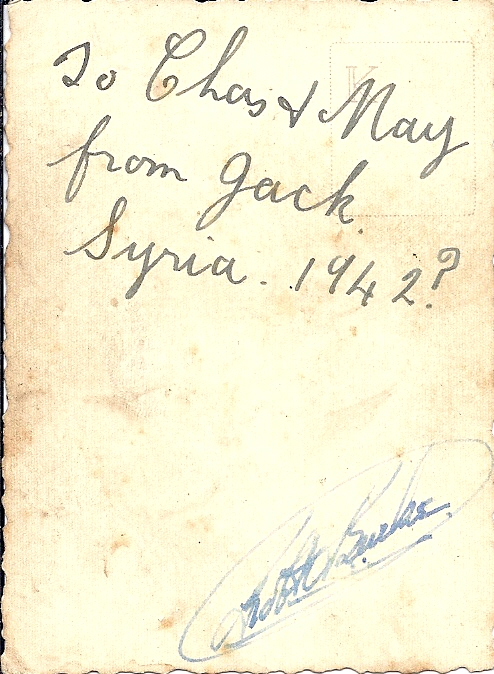 To Chas & May
from Jack.
Syria. 1942?
K